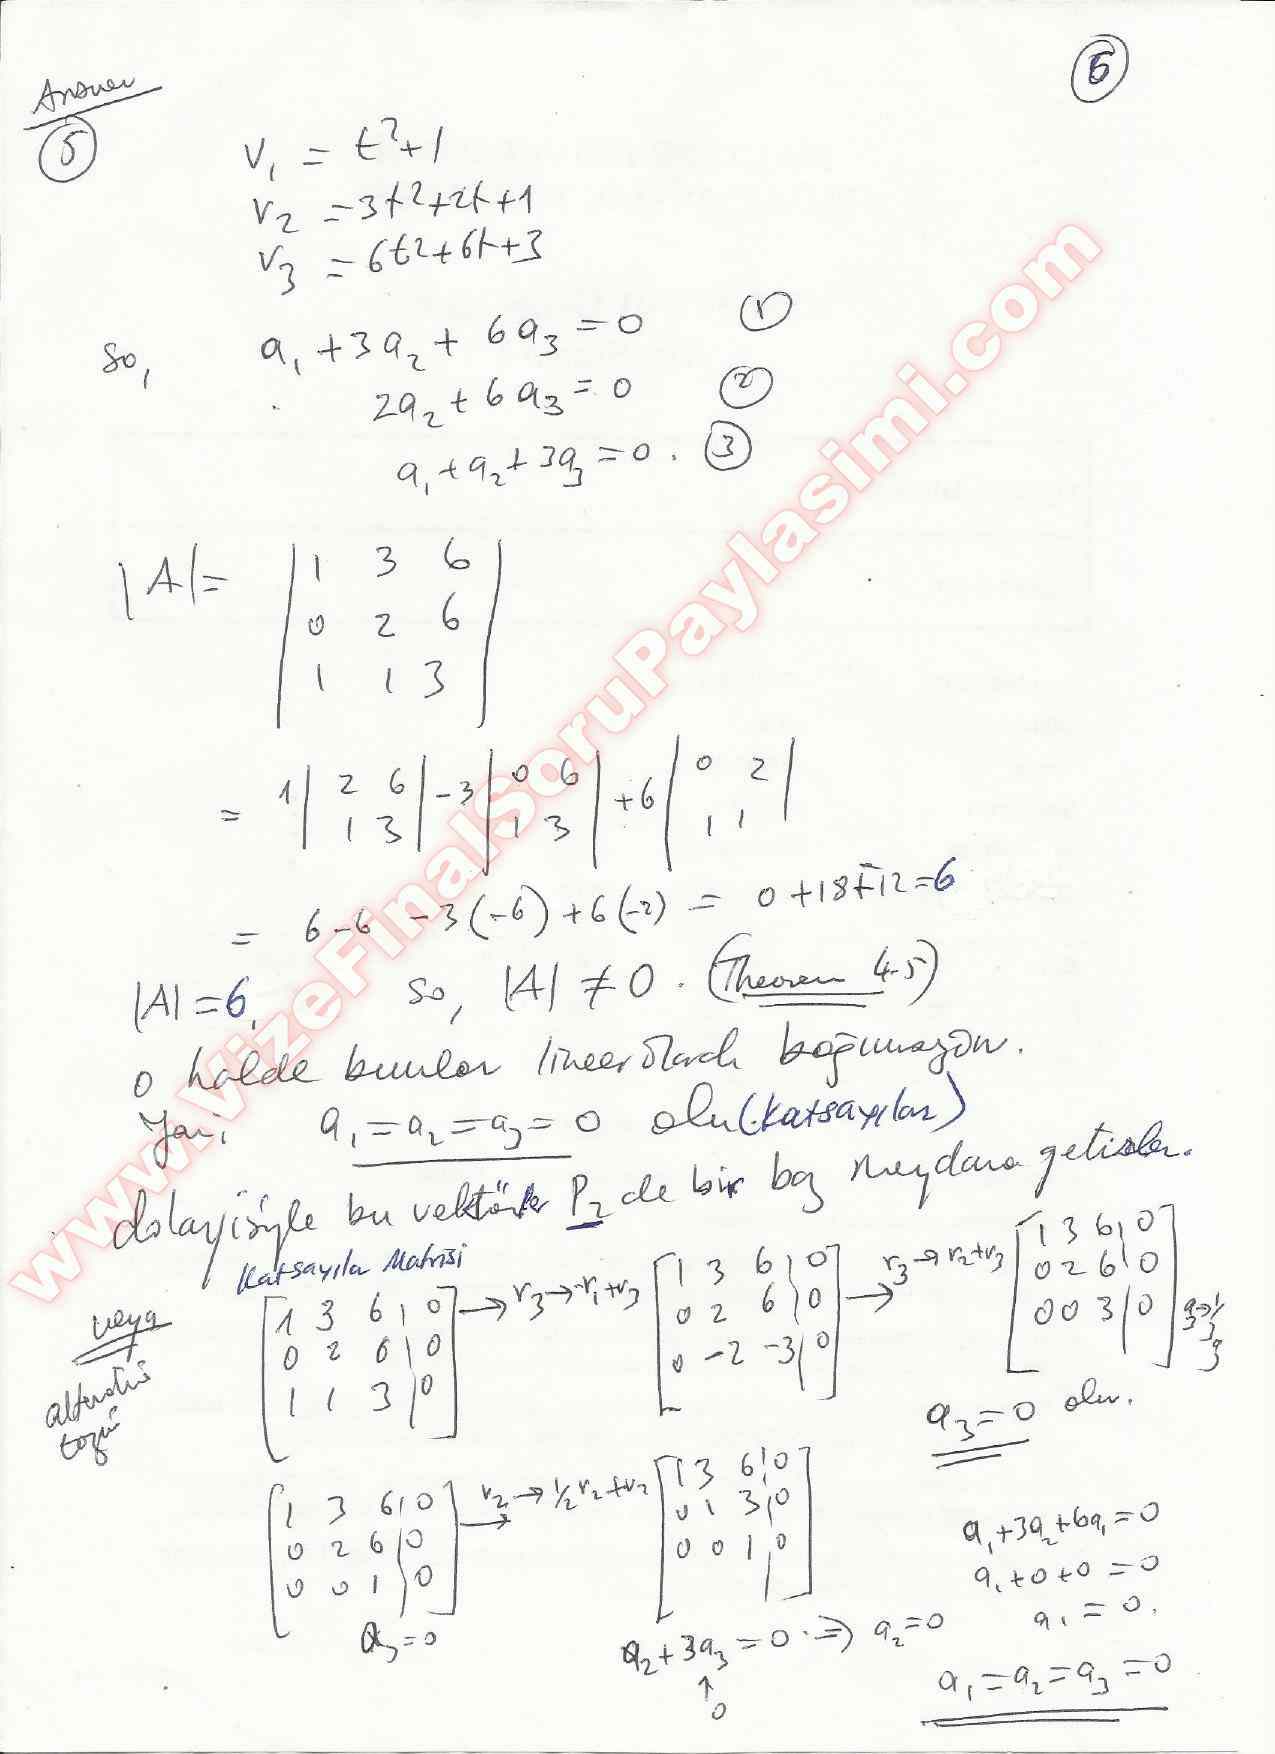 6
Answer
5
v₁ = t²+1
v₂ = 3t²+2t+1
v₃ = 6t²+6t+3
so, a₁ + 3a₂ + 6a₃ = 0 ①
2a₂ + 6a₃ = 0 ②
a₁ + a₂ + 3a₃ = 0. ③
|A| = | 1 3 6 |
| 0 2 6 |
| 1 1 3 |
= 1 | 2 6 | -3 | 0 6 | +6 | 0 2 |
| 1 3 | | 1 3 | | 1 1 |
= 6-6 -3(-6) +6(-2) = 0 +18 +-12 = 6
|A| = 6, so, |A| ≠ 0. (Theorem 4.5)
o halde bunlar lineer olarak bağımsızdır.
Yani a₁ = a₂ = a₃ = 0 olur (katsayılar)
dolayısiyle bu vektörler P₂ de bir baz meydana getirirler.
Katsayılar Matrisi
veya
alternatif
çözüm
[ 1 3 6 | 0 ] → r₃ → -r₁+r₃ [ 1 3 6 | 0 ] → r₃ → r₂+r₃ [ 1 3 6 | 0 ]
[ 0 2 6 | 0 ] [ 0 2 6 | 0 ] [ 0 2 6 | 0 ]
[ 1 1 3 | 0 ] [ 0 -2 -3 | 0 ] [ 0 0 3 | 0 ]
a₃ = 0 olur.
[ 1 3 6 | 0 ] r₂ → 1/2 r₂+r₂ [ 1 3 6 | 0 ]
[ 0 2 6 | 0 ] → [ 0 1 3 | 0 ]
[ 0 0 1 | 0 ] [ 0 0 1 | 0 ]
a₃ = 0
a₂ + 3a₃ = 0 ⇒ a₂ = 0
↑
0
a₁+3a₂+6a₁ = 0
a₁+0+0 = 0
a₁ = 0.
a₁ = a₂ = a₃ = 0
www.VizeFinalSoruPaylasimi.com